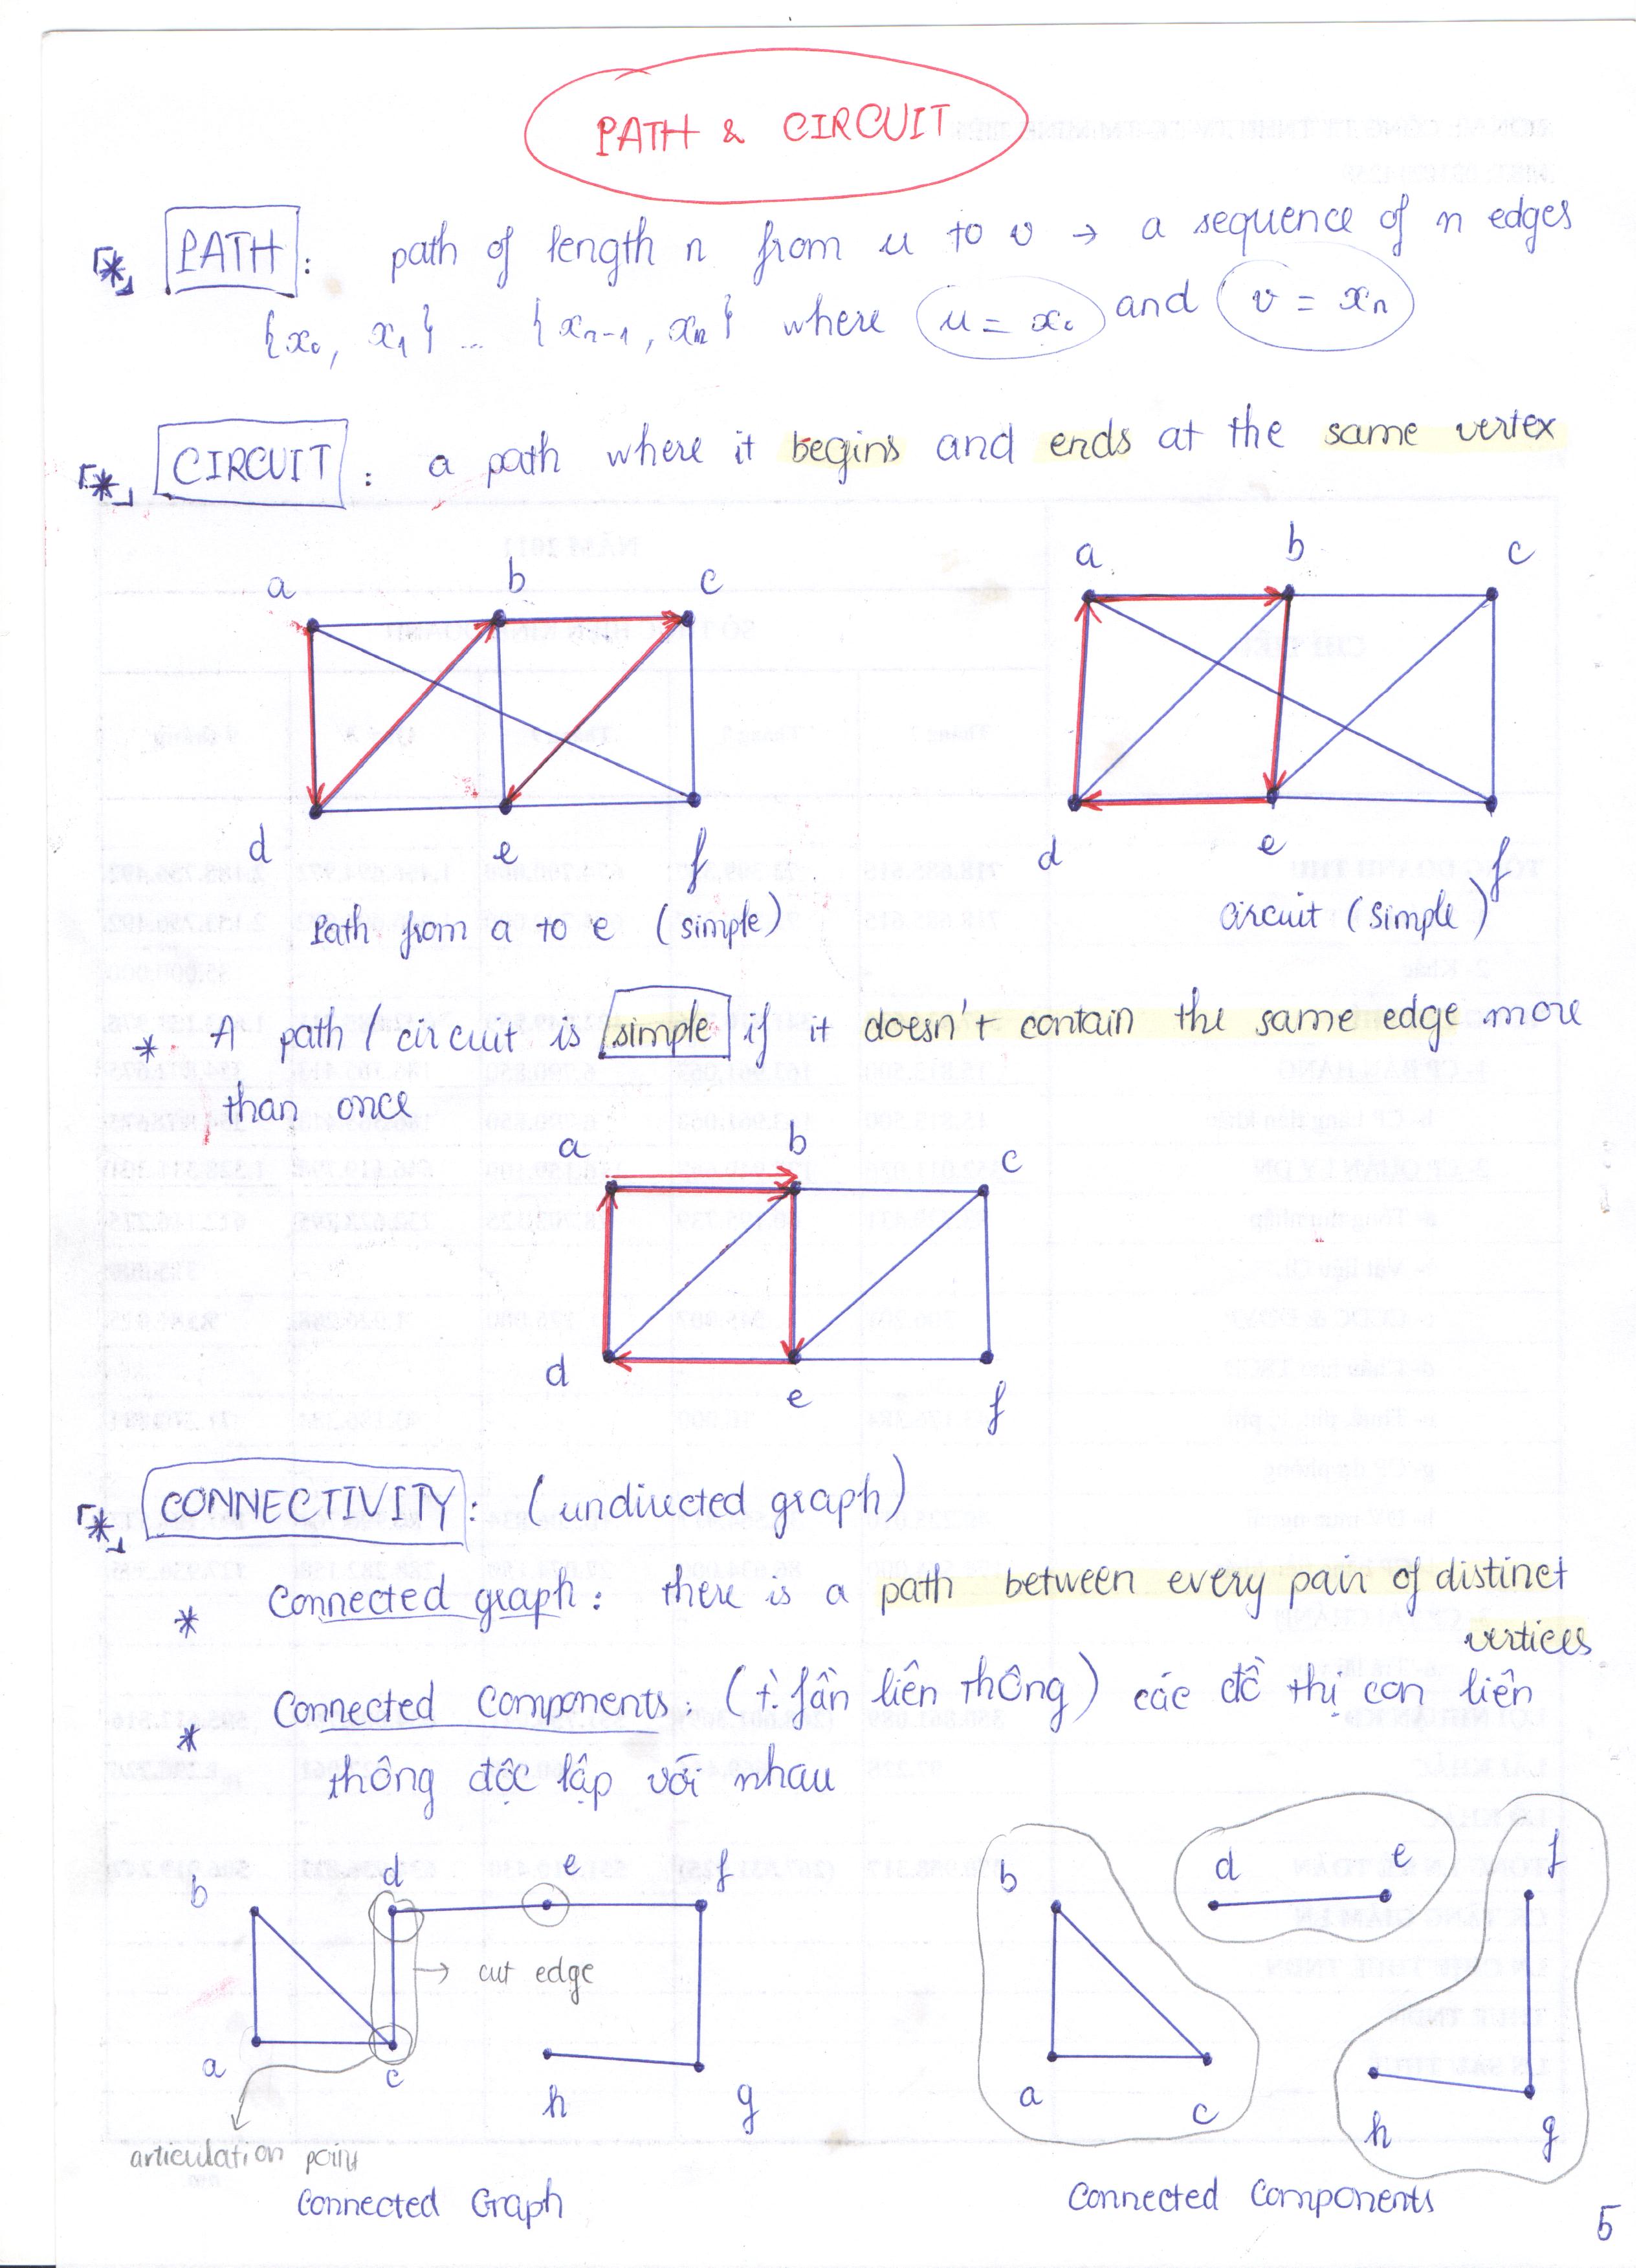 PATH & CIRCUIT
* PATH : path of length n from u to v → a sequence of n edges
{x₀, x₁} ... {xₙ₋₁, xₙ} where u = x₀ and v = xₙ
* CIRCUIT : a path where it begins and ends at the same vertex
a b c
d e f
Path from a to e (simple)
a b c
d e f
circuit (simple)
* A path / circuit is simple if it doesn't contain the same edge more
than once
a b c
d e f
* CONNECTIVITY : (undirected graph)
* Connected graph : there is a path between every pair of distinct
vertices
* Connected Components : (t. fần liên thông) các đồ thị con liên
thông độc lập với nhau
b d e f
→ cut edge
a c h g
articulation point
Connected Graph
b d e f
a c h g
Connected Components
5